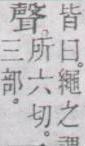 皆曰。繩之謂
聲。所六切。
三部。